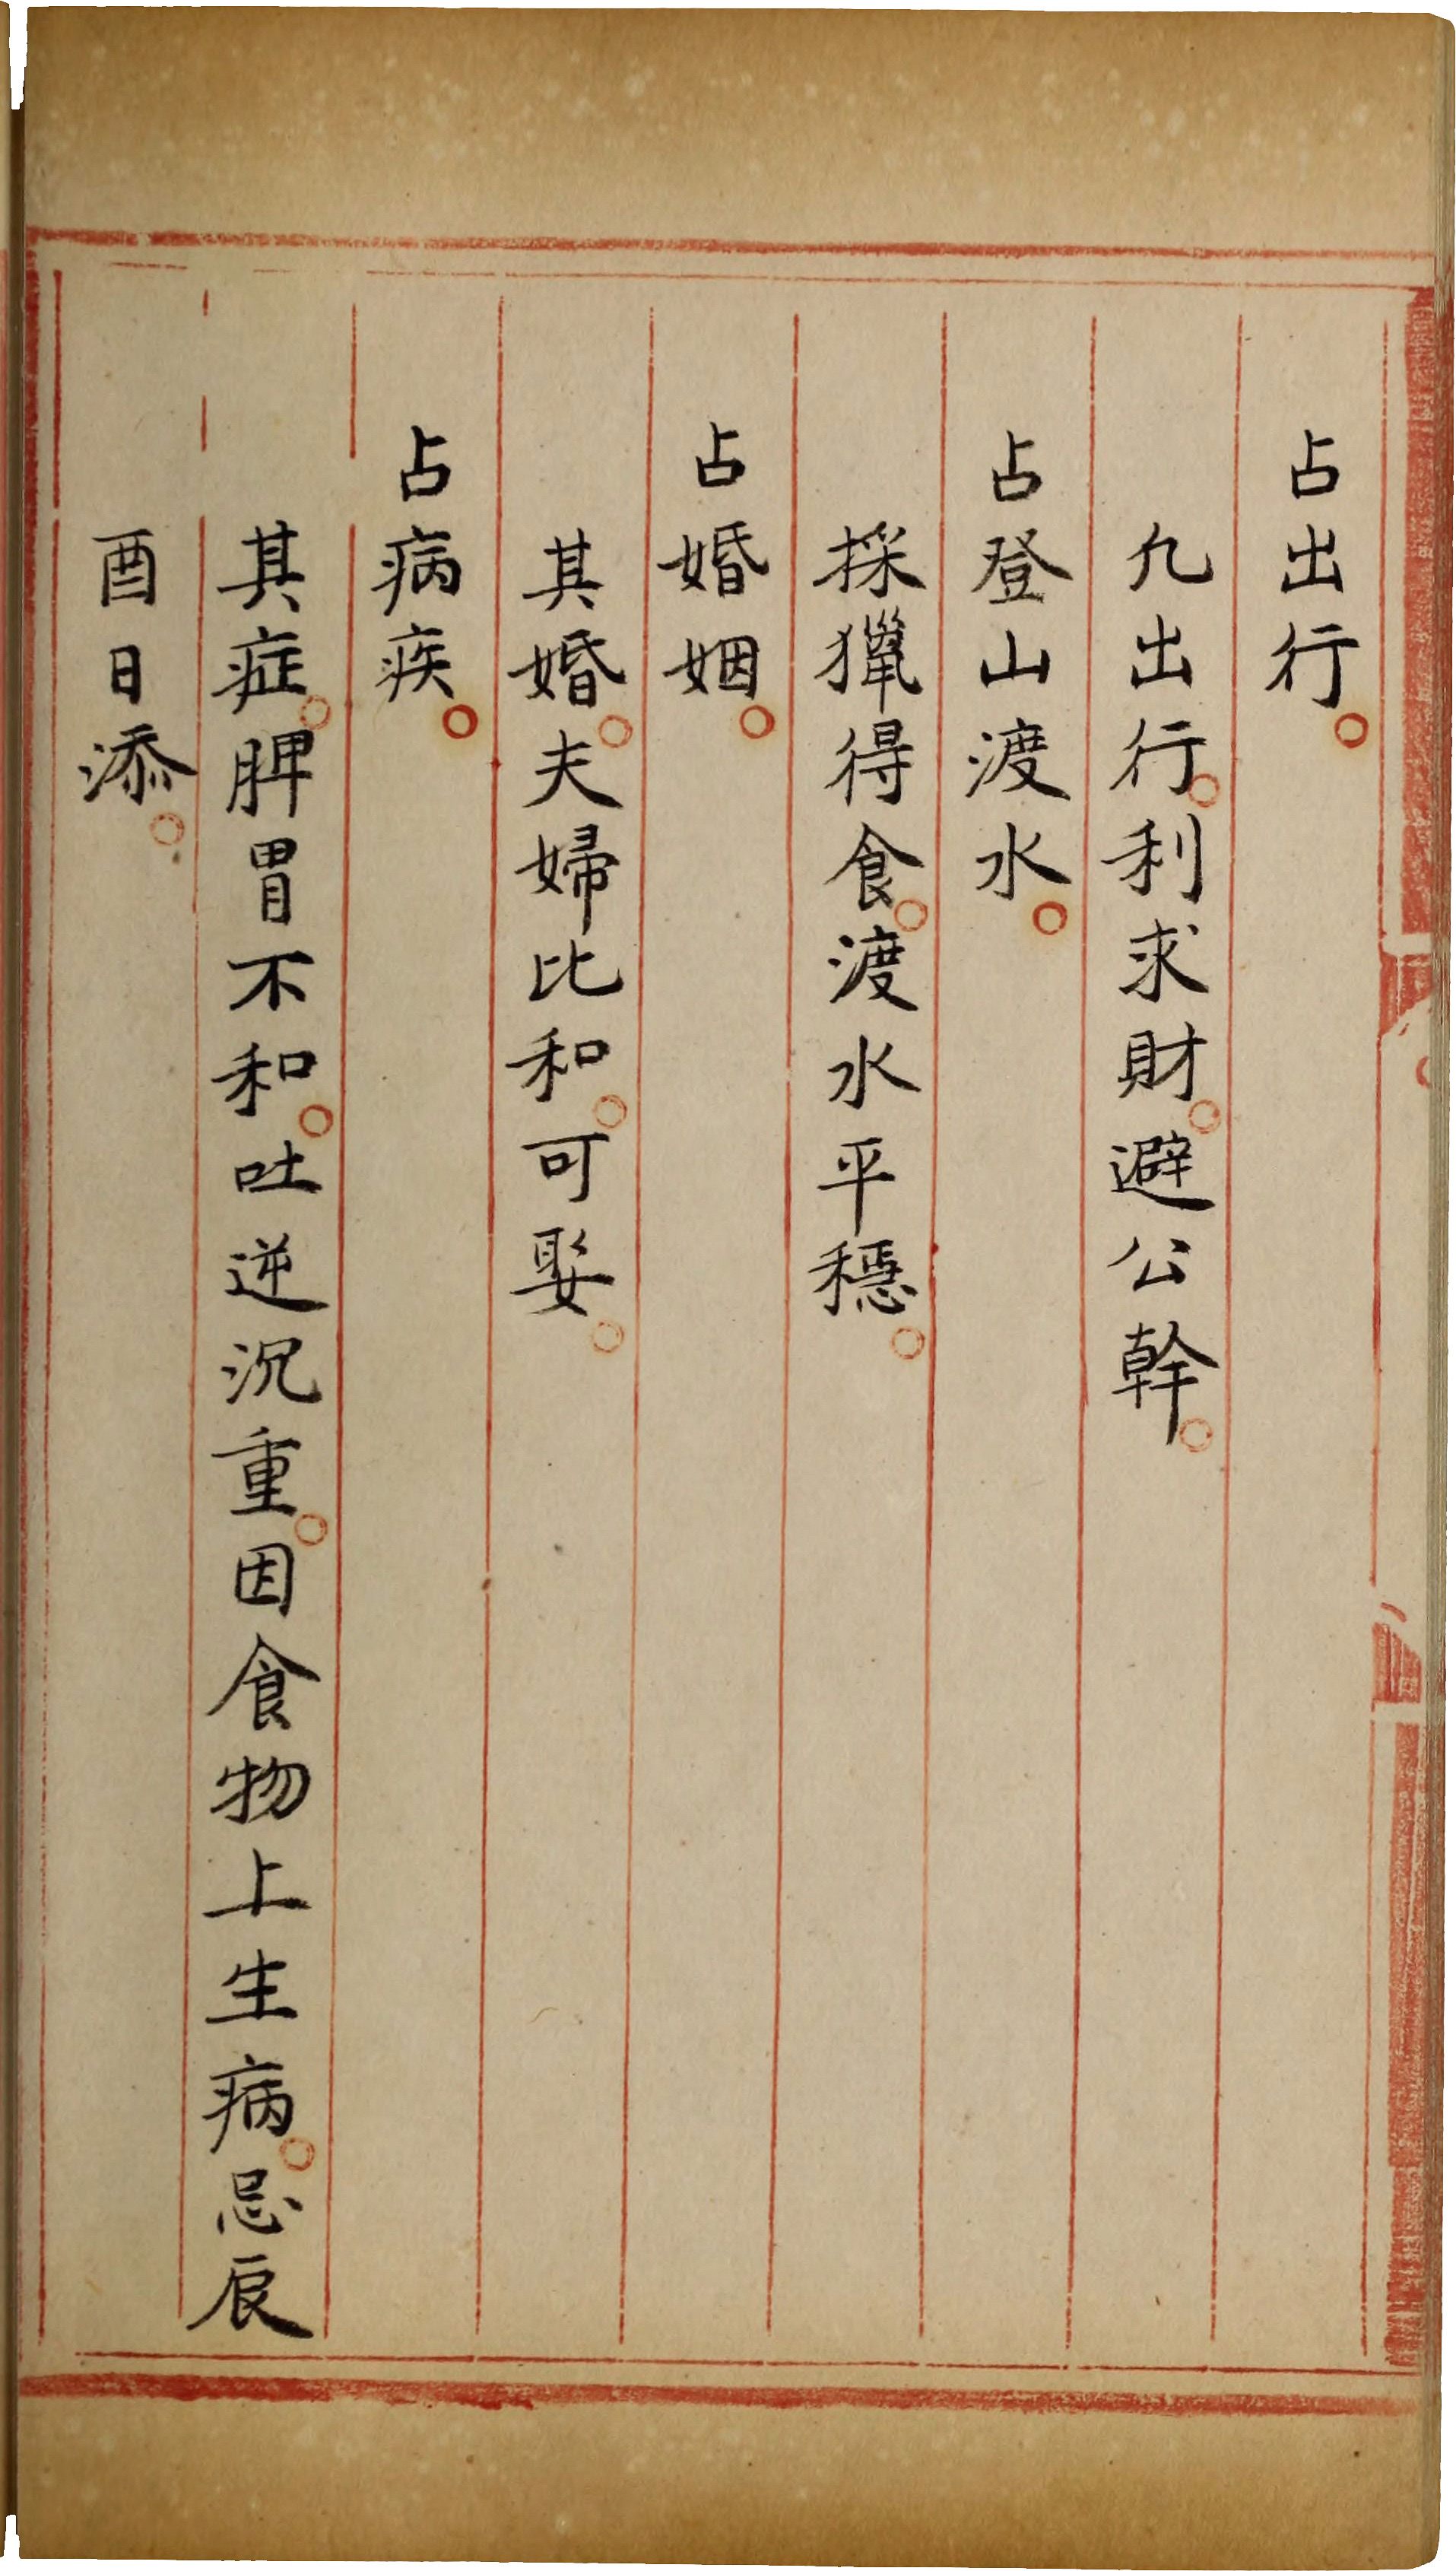 占出行。
凢出行。利求財。避公幹。
占登山渡水。
採獵得食。渡水平穩。
占婚姻。
其婚。夫婦比和。可娶。
占病疾。
其症。脾胃不和。吐逆沉重。因食物上生病。忌辰
酉日添。